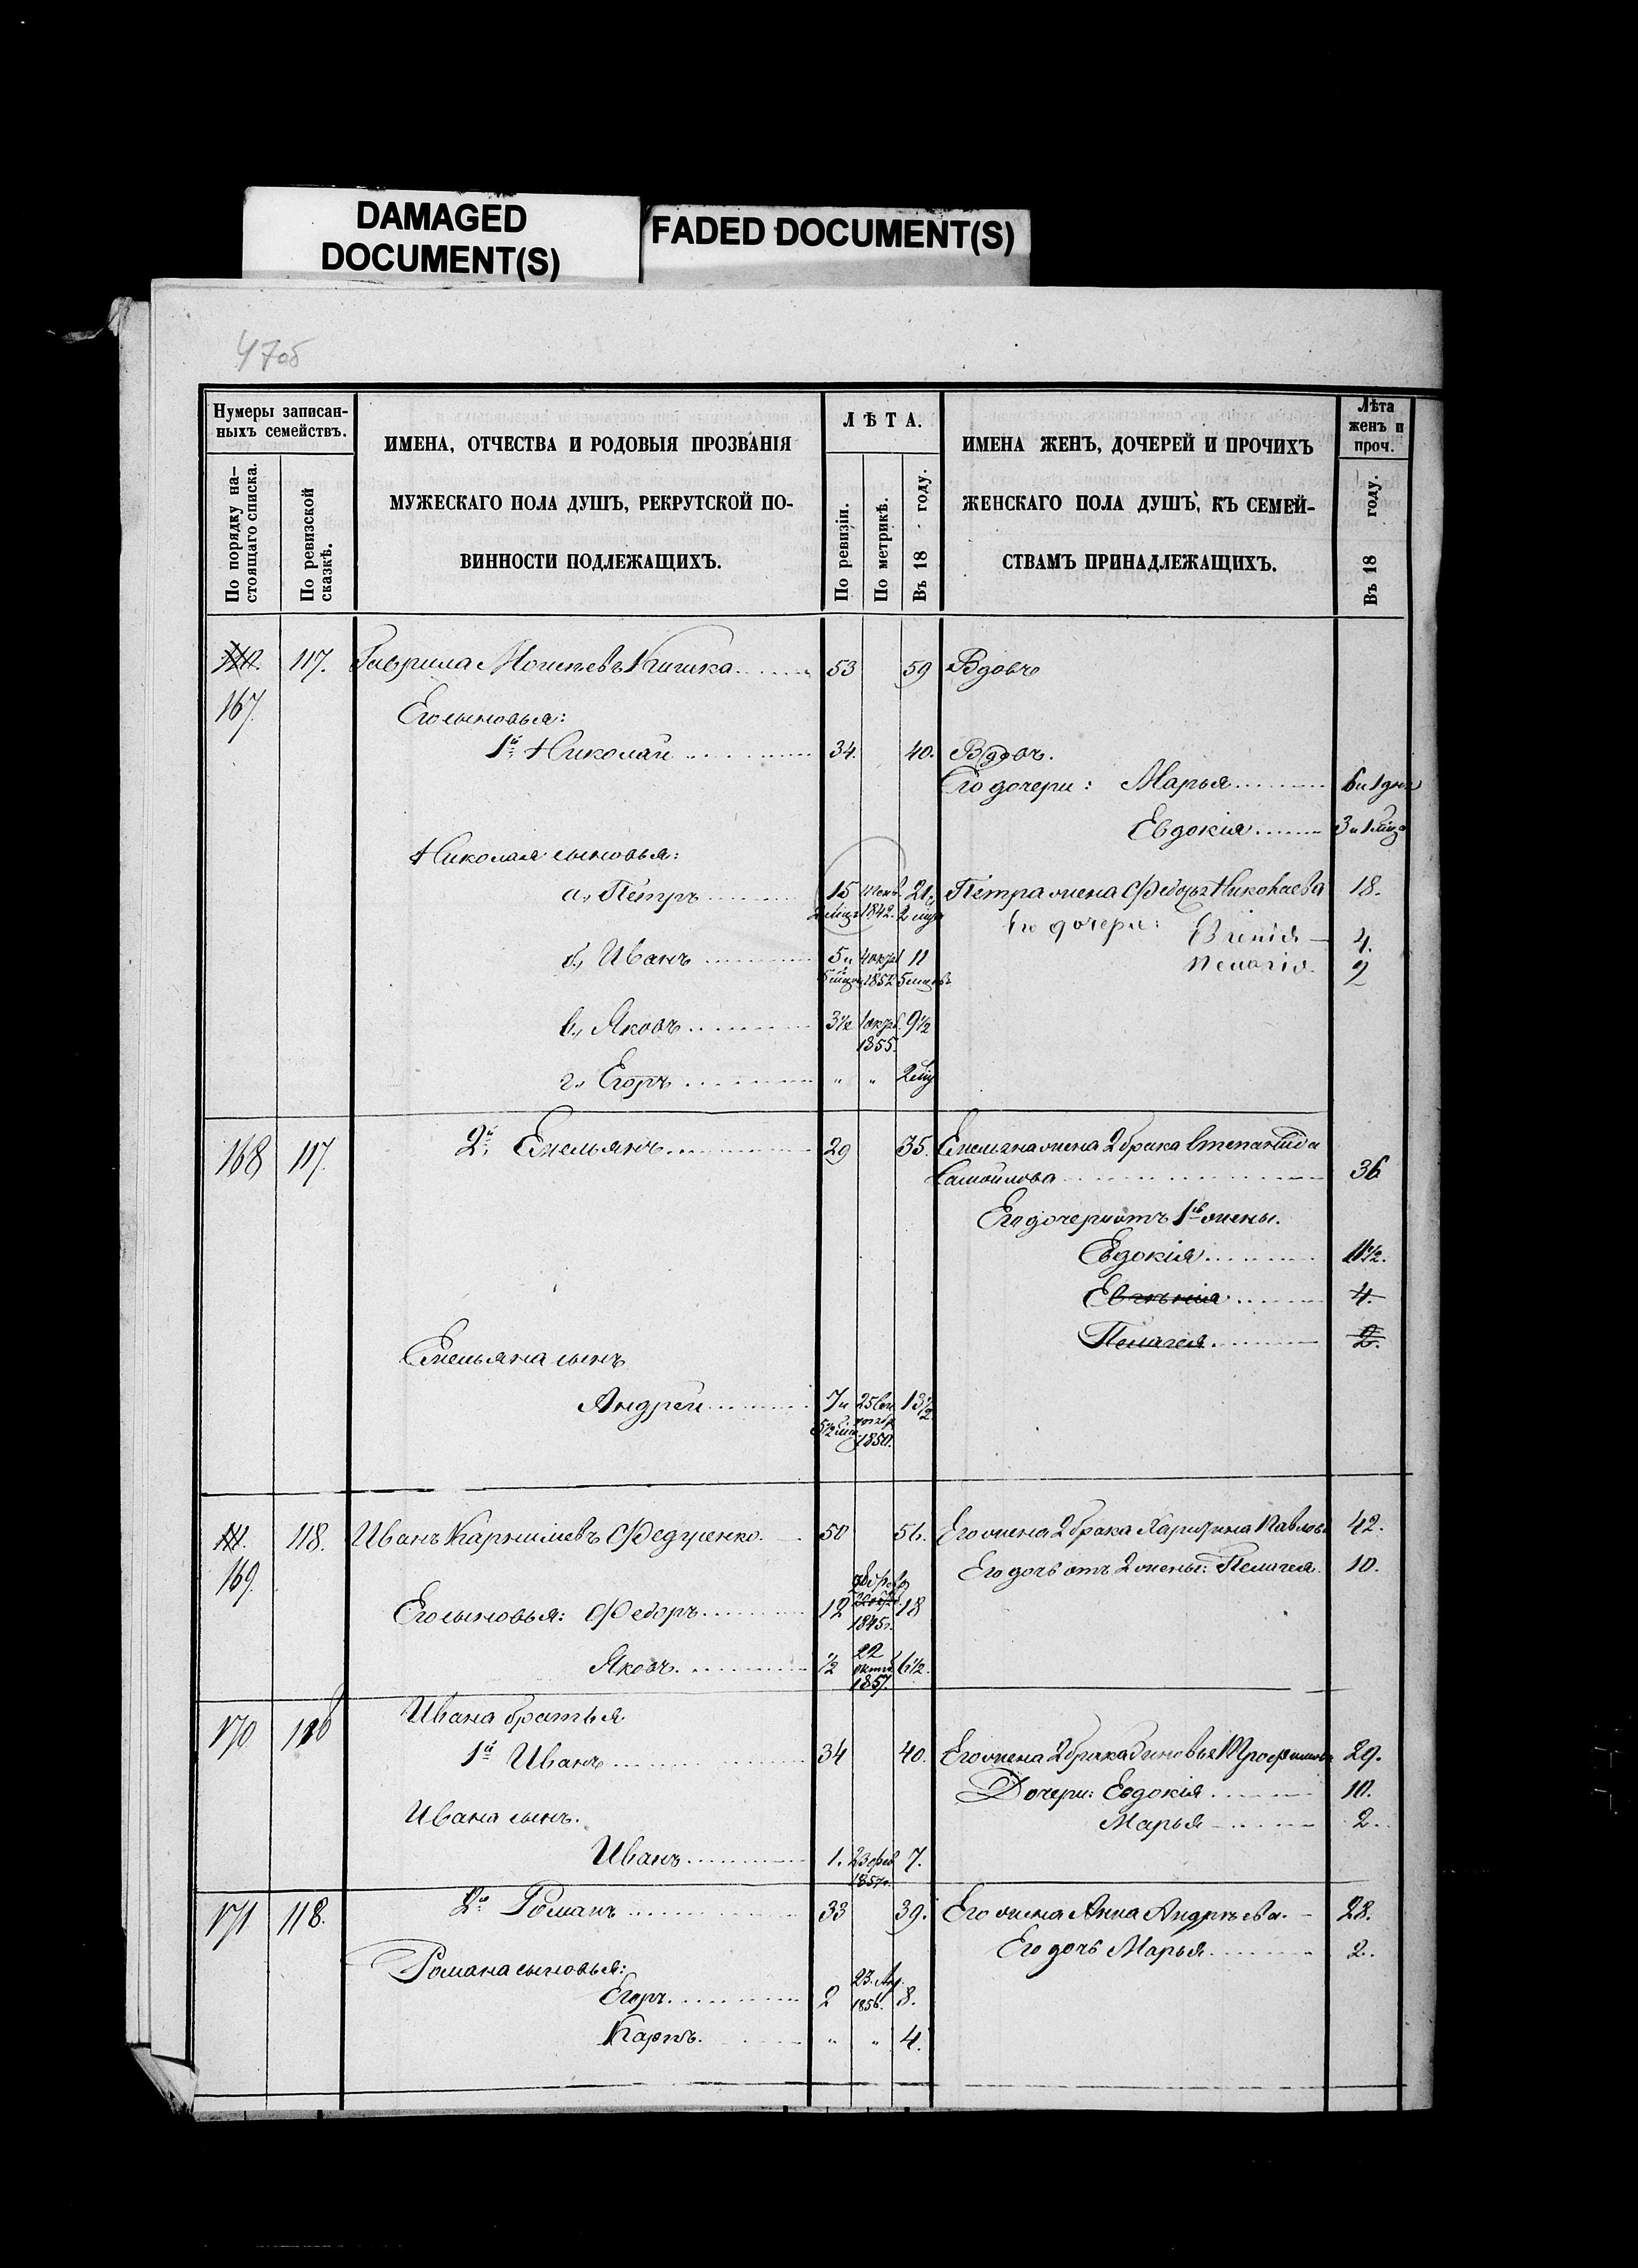 DAMAGED
DOCUMENT(S)
FADED DOCUMENT(S)
47об
Нумеры записан-
ныхъ семействъ.
По порядку на-
стоящаго списка.
По ревизской
сказкѣ.
ИМЕНА, ОТЧЕСТВА И РОДОВЫЯ ПРОЗВАНІЯ
МУЖЕСКАГО ПОЛА ДУШЪ, РЕКРУТСКОЙ ПО-
ВИННОСТИ ПОДЛЕЖАЩИХЪ.
ЛѢТА.
По ревизіи.
По метрикѣ.
Въ 18 году.
ИМЕНА ЖЕНЪ, ДОЧЕРЕЙ И ПРОЧИХЪ
ЖЕНСКАГО ПОЛА ДУШЪ, КЪ СЕМЕЙ-
СТВАМЪ ПРИНАДЛЕЖАЩИХЪ.
Лѣта
женъ и
проч.
Въ 18 году.
117. Гаврила Кишка 53 59 Вдовъ
167. Его сыновья:
1й Николай 34. 40. Вдовъ.
Его дочери: Марья
Евдокія
Николая сыновья:
а., Петръ 15 1842. 21 Петра жена Федосья Николаева 18.
Его дочери: 4.
б., Иванъ 5 1852 11 2
в., Яковъ 3½ 1855. 9½
г., Егоръ " "
168 117. 2й Емельянъ 29 35. Емельяна жена 2 брака Степанида
Самойлова 36
Его дочери отъ 1й жены.
Евдокія 11½.
Евгенія 4.
Пелагея 2.
Емельяна сынъ
Андрей 7 1850. 13½
118. Иванъ Карниліевъ Федуненко. 50 56. Его жена 2 брака Павлова 42.
169. Его дочь отъ 2 жены: Пелагея. 10.
Его сыновья: Федоръ 12 1845г. 18
Яковъ ½ 22 октяб 1857. 6½.
170 118 Ивана братья
1й Иванъ 34 40. Его жена 2 брака Зиновья Трофимова 29.
Дочери: Евдокія 10.
Ивана сынъ. Марья 2.
Иванъ 1. 23 фев 1857г. 7.
171 118. 2й Романъ 33 39. Его жена Анна Андрѣева. 28.
Его дочь Марья 2.
Романа сыновья:
Егоръ 2 23. Ап. 1856. 8.
Карпъ. " " 4.